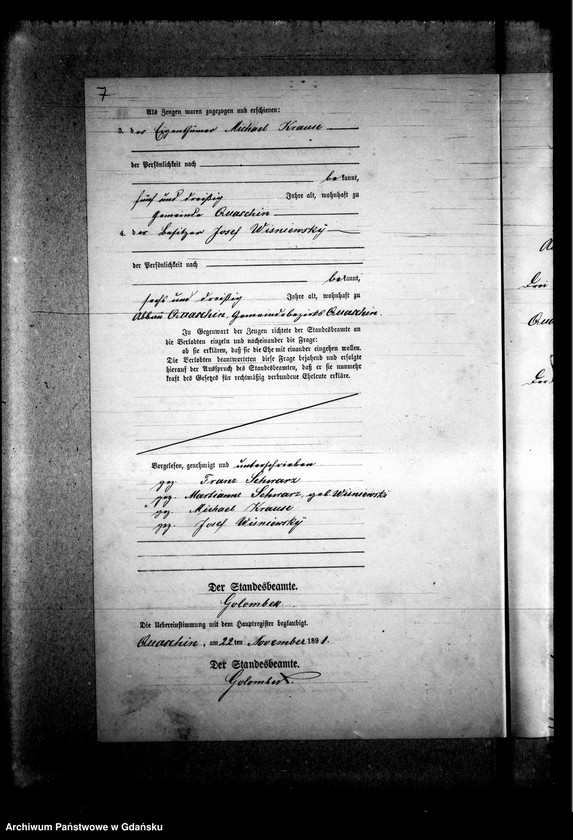 7
Als Zeugen waren zugezogen und erschienen:
3. der Eigenthümer Michael Krause
der Persönlichkeit nach
bekannt,
fünf und dreißig Jahre alt, wohnhaft zu
Gemeinde Quaschin
4. der Besitzer Josef Wisniewsky
der Persönlichkeit nach
bekannt,
sechs und dreißig Jahre alt, wohnhaft zu
Abbau Quaschin, Gemeindebezirks Quaschin.
In Gegenwart der Zeugen richtete der Standesbeamte an
die Verlobten einzeln und nacheinander die Frage:
ob sie erklären, daß sie die Ehe mit einander eingehen wollen.
Die Verlobten beantworteten diese Frage bejahend und erfolgte
hierauf der Ausspruch des Standesbeamten, daß er sie nunmehr
kraft des Gesetzes für rechtmäßig verbundene Eheleute erkläre.
Vorgelesen, genehmigt und unterschrieben
gez. Franz Schwarz
gez. Marianne Schwarz, geb. Wisniewski
gez. Michael Krause
gez. Josef Wisniewsky
Der Standesbeamte.
Golombek
Die Uebereinstimmung mit dem Hauptregister beglaubigt.
Quaschin, am 22ten November 1891.
Der Standesbeamte.
Golombek.
Drei
Qua
Archiwum Państwowe w Gdańsku